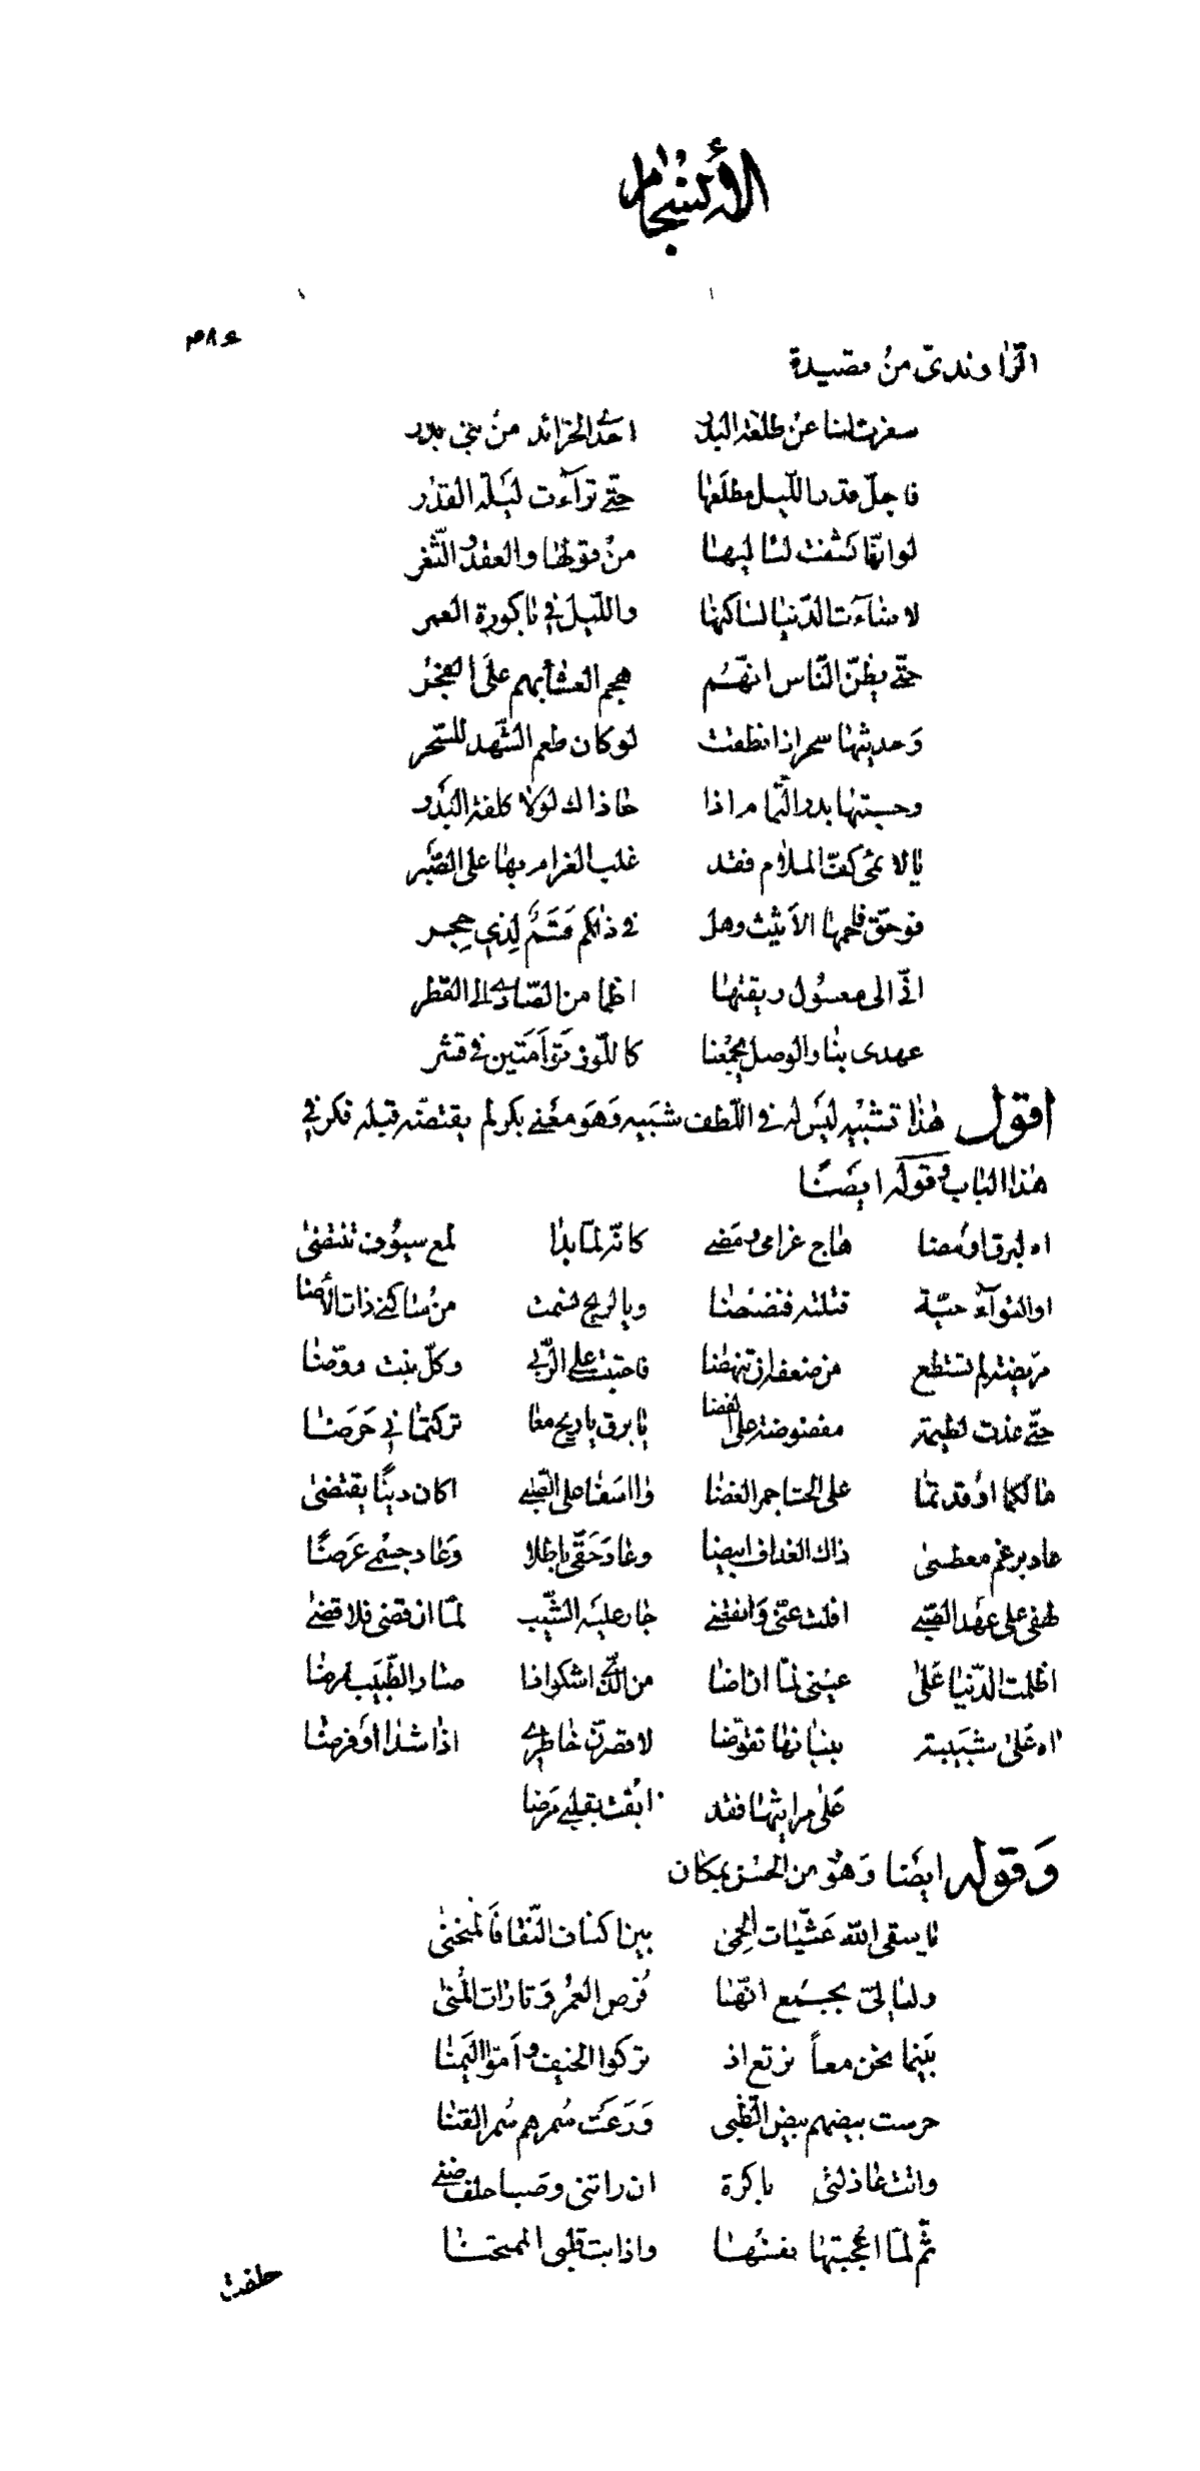 الأنسجام
٣٨٤
الراوندى من قصيدة
سفرت لنا عن طلعة البدر احدى الخرائد من بنى بدر
فاجلّ قدر الليل مطلعها حتّى ترآءت ليلة القدر
لو انّها كشفت لنا لبها من قولها والعقد والثّغر
لاضآءت الدّنيا لساكنها والليل في باكورة العمر
حتّى يظنّ النّاس انهم هجم العشا بهم على الفجر
وحديثها سحر اذا نطقت لو كان طعم الشّهد للسّحر
وحسبتها بدر التّمام اذا حاذاك لولا كلفة البدر
يا لائمى كفّ الملام فقد غلب الغرام بها على الصّبر
فوحقّ فاحمها الاثيث وهل في ذلكم قَسَمٌ لِذي حِجر
انّى الى معسول ريقتها اظما من الصّادى الى القطر
عهدى بنا والوصل يجمعنا كاللّوز توأمتين في قشر
اقول هذا تشبيه ليس له في اللّطف شبيه وهو معنى بكر لم يقتضّه قبله فكر في
هذا الباب وقوله ايضًا
اه لبرق اومضا هاج غرامى ومضى كانّه لمّا بدا لمع سيوف تنتضىٰ
او التوآء حيّة قتلته فنضنضا وبالريح نسمت من ساكنى ذات الأضا
مريضة لم تستطع من ضعف ان تنهضا فاحتبت على الرّبى وكلّ بنت روّضا
حتّى غدت لطيمة مفضوضة على الفضا يا برق يا ريح معا تركتما في حَرَضا
ما لكما اوقدتما على الحشا جمر الغضا وا اسفا على الصّبى اكان دينًا يقتضىٰ
عاد برغم معطسى ذاك الغداف ابيضا وعاد حَقّى باطلا وعاد جسمى عَرَضًا
لهفى على عهد الصّبى افلت عنّى وانقضى جار عليه الشّيب لمّا ان قضى فلا قضىٰ
اظلمت الدّنيا على عينى لمّا ان اضا من الذّى اشكو اذا صار الطّبيب ممرضا
اه على شبيبة بنيانها تقوّضا لا قصرنّ خاطرى اذا شدا او قرضا
على مراثيها فقد ابقت بقلبى مَرَضا
وقوله ايضا وهو من الحسن بمكان
يا سقى الله عَشّيات الحمى بين اكناف النّقا فالمنحنىٰ
وليالى بجمع انّها فُرص العمر وتارات المنىٰ
بينما نحن معاً نرتع اذ تركوا الخيف وامّوا اليَمَنا
حرست بيضهم بيض الظّبى وَرَعَت سُمرهم سُمر القنا
واتت عاذلتى باكرة ان راتنى وصبا حلف ضنى
ثمّ لمّا اعجبتها نفسها واذابت قلبى الممتحنا
حلفت